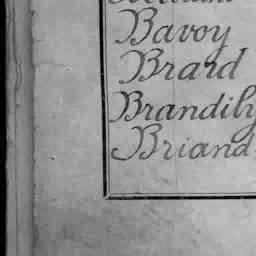 Bavoy
Brard
Brandily
Briand